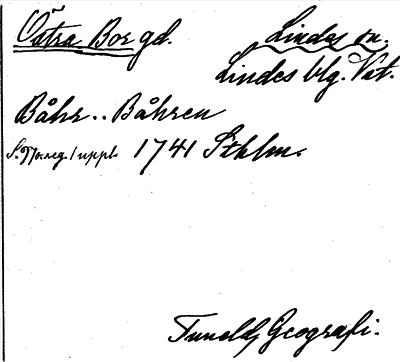 Östra Bor gd. Lindes sn.
Lindes blg. Vst.
Båhr.. Båhren
S. Noreg. 1 uppl. 1741 Sthlm.
Tunelds Geografi.